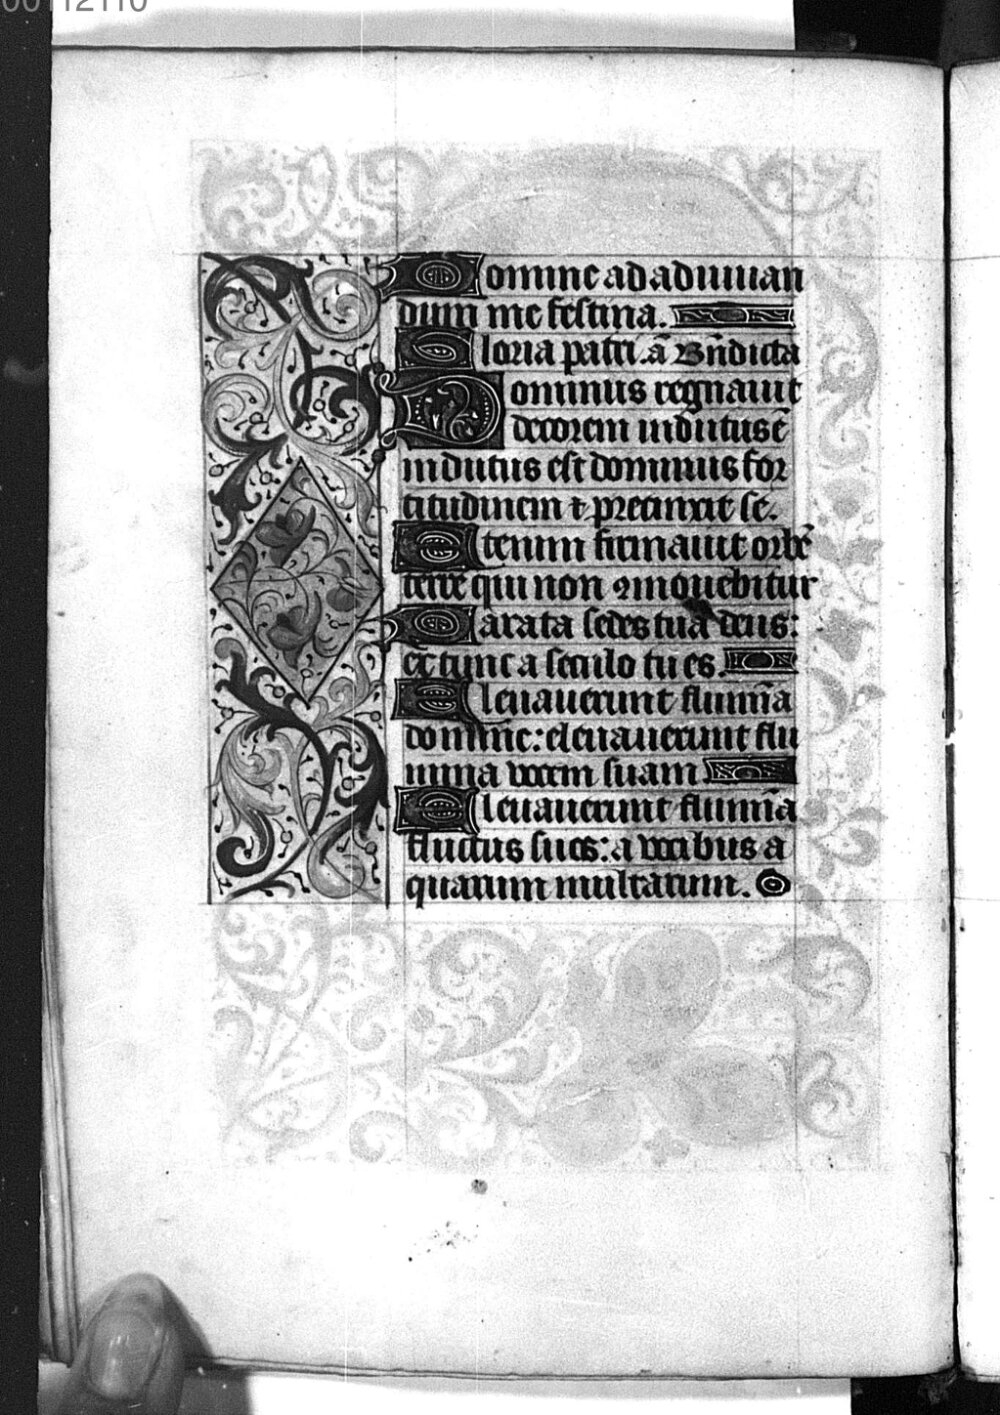 00112110
Domine ad adiuuan
dum me festina.
Gloria patri. a Bn̄dicta
Dominus regnauit
decorem indutus ē
indutus est dominus for
titudinem ⁊ precinxit se.
Etenim firmauit orbē
terre qui non ꝯmouebitur
Parata sedes tua deus:
ex tunc a seculo tu es.
Eleuauerunt flumīa
domine: eleuauerunt flu
mina vocem suam
Eleuauerunt flumīa
fluctus suos: a vocibus a
quarum multarum.